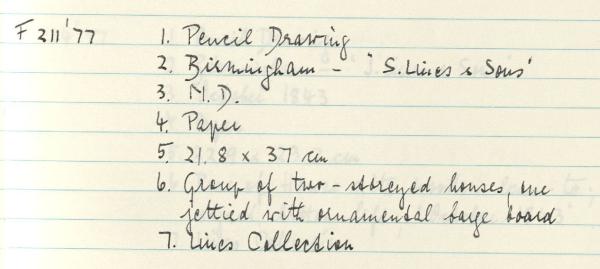 F 211'77 1. Pencil Drawing
2. Birmingham - "S. Lines & Sons"
3. N.D.
4. Paper
5. 21.8 x 37 cm
6. Group of two-storeyed houses, one
jettied with ornamental barge board
7. Lines Collection